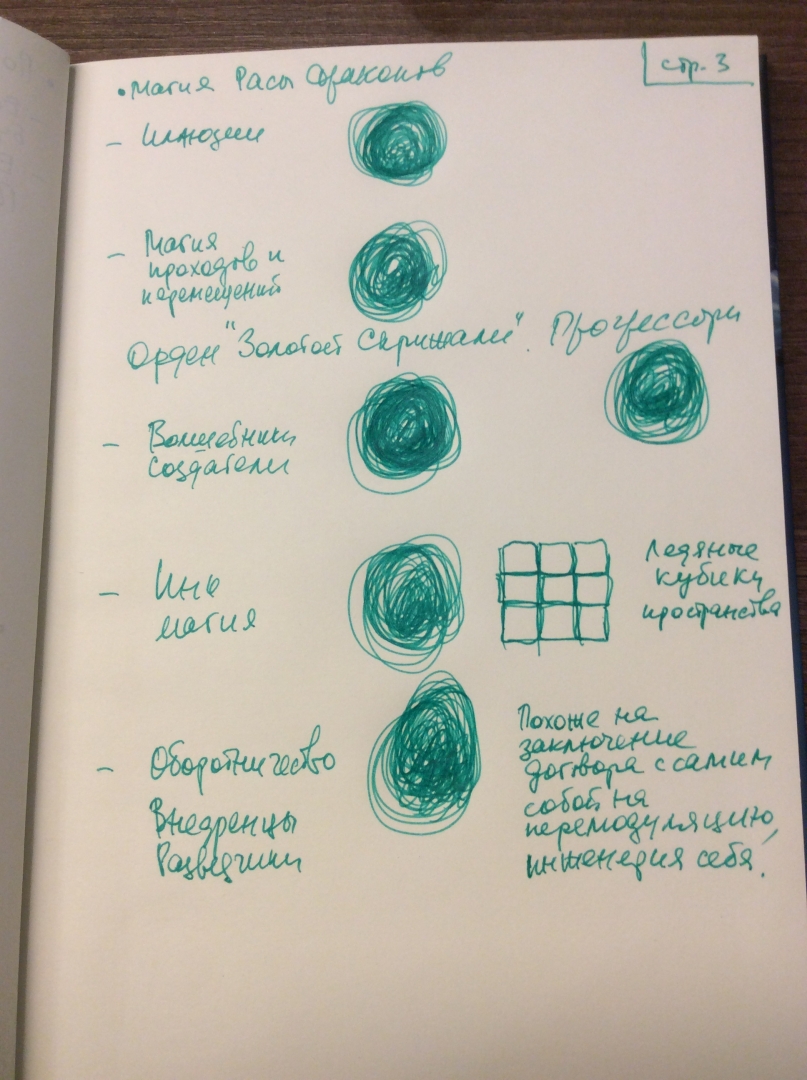 стр. 3
• Магия Расы Драконов
– Иллюзии
– Магия
проходов и
перемещений
Орден "Золотой Скрижали". Процессоры
– Волшебники
создатели
– Инь
магия
Ледяные
кубики
пространства
– Оборотничество
Внедренцы
Разведчики
Похоже на
заключение
договора с самим
собой на
перемодуляцию,
инженерия себя!